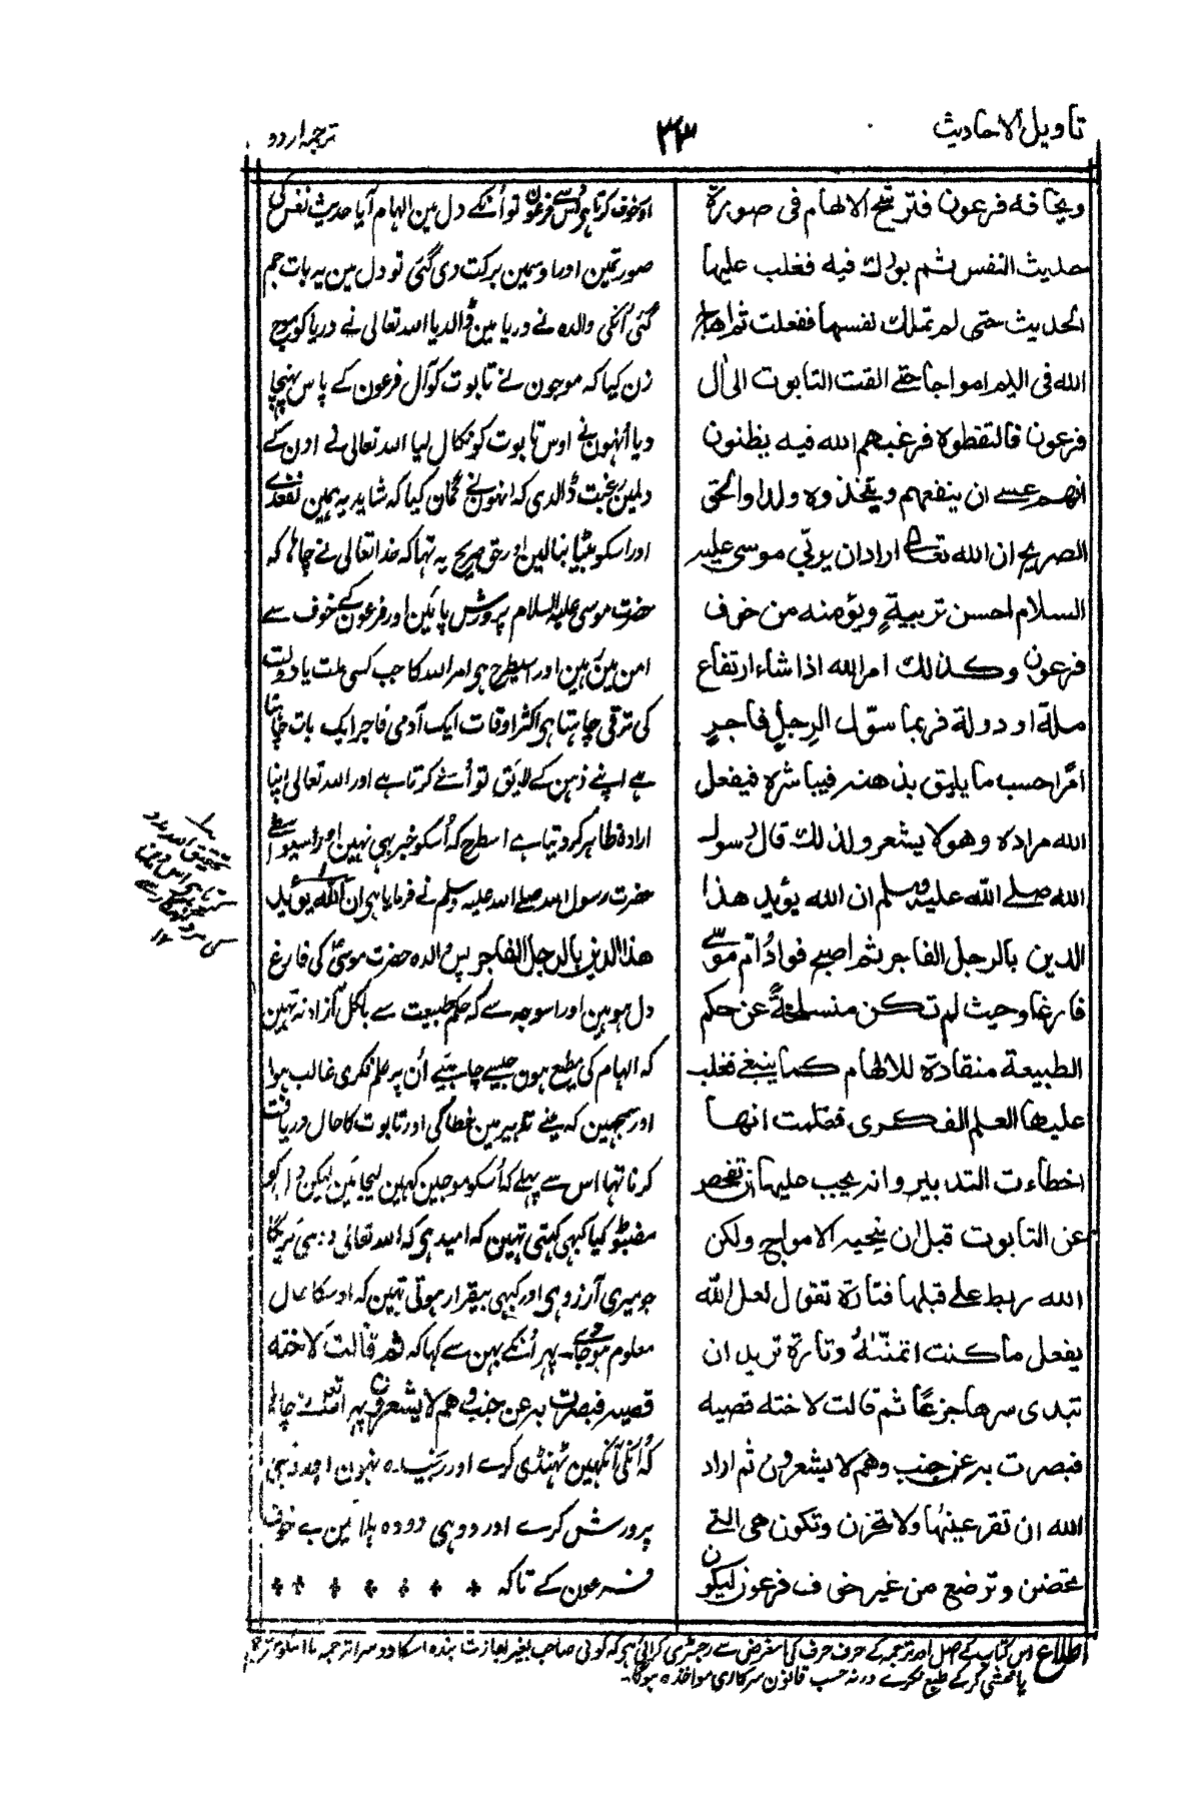 تاویل الاحادیث
۳۳
ترجمہ اردو
ویخافه فرعون فترشح الالهام فی صورة
حدیث النفس ثم بورك فیه فغلب علیها
الحدیث حتی لم تملك نفسها ففعلت ثم اهاج
الله فی الیم امواجا حتے القت التابوت الی ال
فرعون فالتقطوه فرغبهم الله فیه یظنون
انهم عسے ان ینفعهم ویتخذوه ولدا والحق
الصریح ان الله تعالے اراد ان یوتی موسی علیه
السلام احسن تربیةٍ ویؤمنه من خوف
فرعون وکذلك امر الله اذا شاء ارتفاع
ملة او دولة فربما سوّل الرجلِ فاجرٍ
امرًا حسب ما یلیق بذهنه فیباشره فیفعل
الله مراده وهو لا یشعر ولذلك قال رسول
الله صلے الله علیه وسلم ان الله یؤید هذا
الدین بالرجل الفاجر ثم اصبح فواد اُم موسے
فارغا وحیث لم تکن منسلخةً عن حکم
الطبیعة منقادة للالهام کما ینبغے فغلب
علیها العلم الفکری فقلت انها
اخطاءت التدبیر وانه یجب علیها ان تفحص
عن التابوت قبل ان ینجیه الامواج ولکن
الله ربط علے قبلها فتارة تقول لعل الله
یفعل ما کنت اتمنّاهُ وتارة ترید ان
تبدی سرها جزعًا ثم قالت لاخته قصیه
فبصرت به عن جنب وهم لا یشعرون ثم اراد
الله ان تقر عینها ولا تحزن وتکون هی التے
تحضن وترضع من غیر خوف فرعون لیکون
اور خوف کرتا ہی اُس سے فرعون تو اُنکے دل مین الہام آیا حدیث نفس کی
صورتمین اور اوسمین برکت دی گئی تو دل مین یہ بات جم
گئی اُنکی والدہ نے دریا مین ڈالدیا اللہ تعالی نے دریا کو موج
زن کیا کہ موجون نے تابوت کو آل فرعون کے پاس پہنچا
دیا اُنہون نے اوس تابوت کو نکال لیا اللہ تعالی نے اون کے
دلمین رغبت ڈالدی کہ انہونے گمان کیا کہ شاید یہ ہمین نفع دے
اور اسکو بیٹا بنالین اور حق صریح یہ تہا کہ خدا تعالی نے چاہا کہ
حضرت موسی علیہ السلام پرورش پائین اور فرعون کے خوف سے
امن مین رہین اور اسیطرح ہی امر اللہ کا جب کسی ملت یا دولت
کی ترقی چاہتا ہی اکثر اوقات ایک آدمی فاجر ایک بات چاہتا
ہے اپنے ذہن کے لایق تو اُسے کرتا ہے اور اللہ تعالی اپنا
ارادہ ظاہر کر دیتا ہے اسطرح کہ اُسکو خبر ہی نہین اور اسیواسطے
حضرت رسول اللہ صلے اللہ علیہ وسلم نے فرمایا ہی ان اللہ یوئید
هذا الدین بالرجل الفاجر پس والدہ حضرت موسیٰ کی فارغ
دل ہوئین اور اسوجہ سے کہ حکم طبیعت سے بالکل آزاد نہ تہین
کہ الہام کی مطیع ہون جیسے چاہیئے اُن پر علم فکری غالب ہوا
اور سمجہین کہ مینے تدبیر مین خطا کی اور تابوت کا حال دریافت
کرنا تہا اس سے پہلے کہ اُسکو موجین کہین لیجائین لیکن
مضبوط کیا کبہی کہتی تہین کہ امید ہی کہ اللہ تعالی وہی کریگا
جو میری آرزو ہی اور کبہی بیقرار ہوتی تہین کہ اوسکا حال
معلوم ہوجاے۔ پہر اُنکے بہن سے کہا کہ ثم قالت لاخته
قصیه فبصرت به عن جنب وهم لا یشعرون پہر اللہ نے چاہا
کہ اُنکی آنکہین ٹہنڈی کرے اور رنجیدہ نہون اور وہی
پرورش کرے اور دوہی دودہ پلائین بے خوف
فرعون کے تاکہ
تحقیق اللہ مدد
اطلاع اس کتاب کے اصل اور ترجمہ کے حرف حرف کی اسغرض سے رجسٹری کرائی ہی کہ کوئی صاحب بغیر اجازت بندہ اسکا دوسرا ترجمہ
یا محشی کرکے طبع نکرے ورنہ حسب قانون سرکاری مواخذہ ہوگا۔